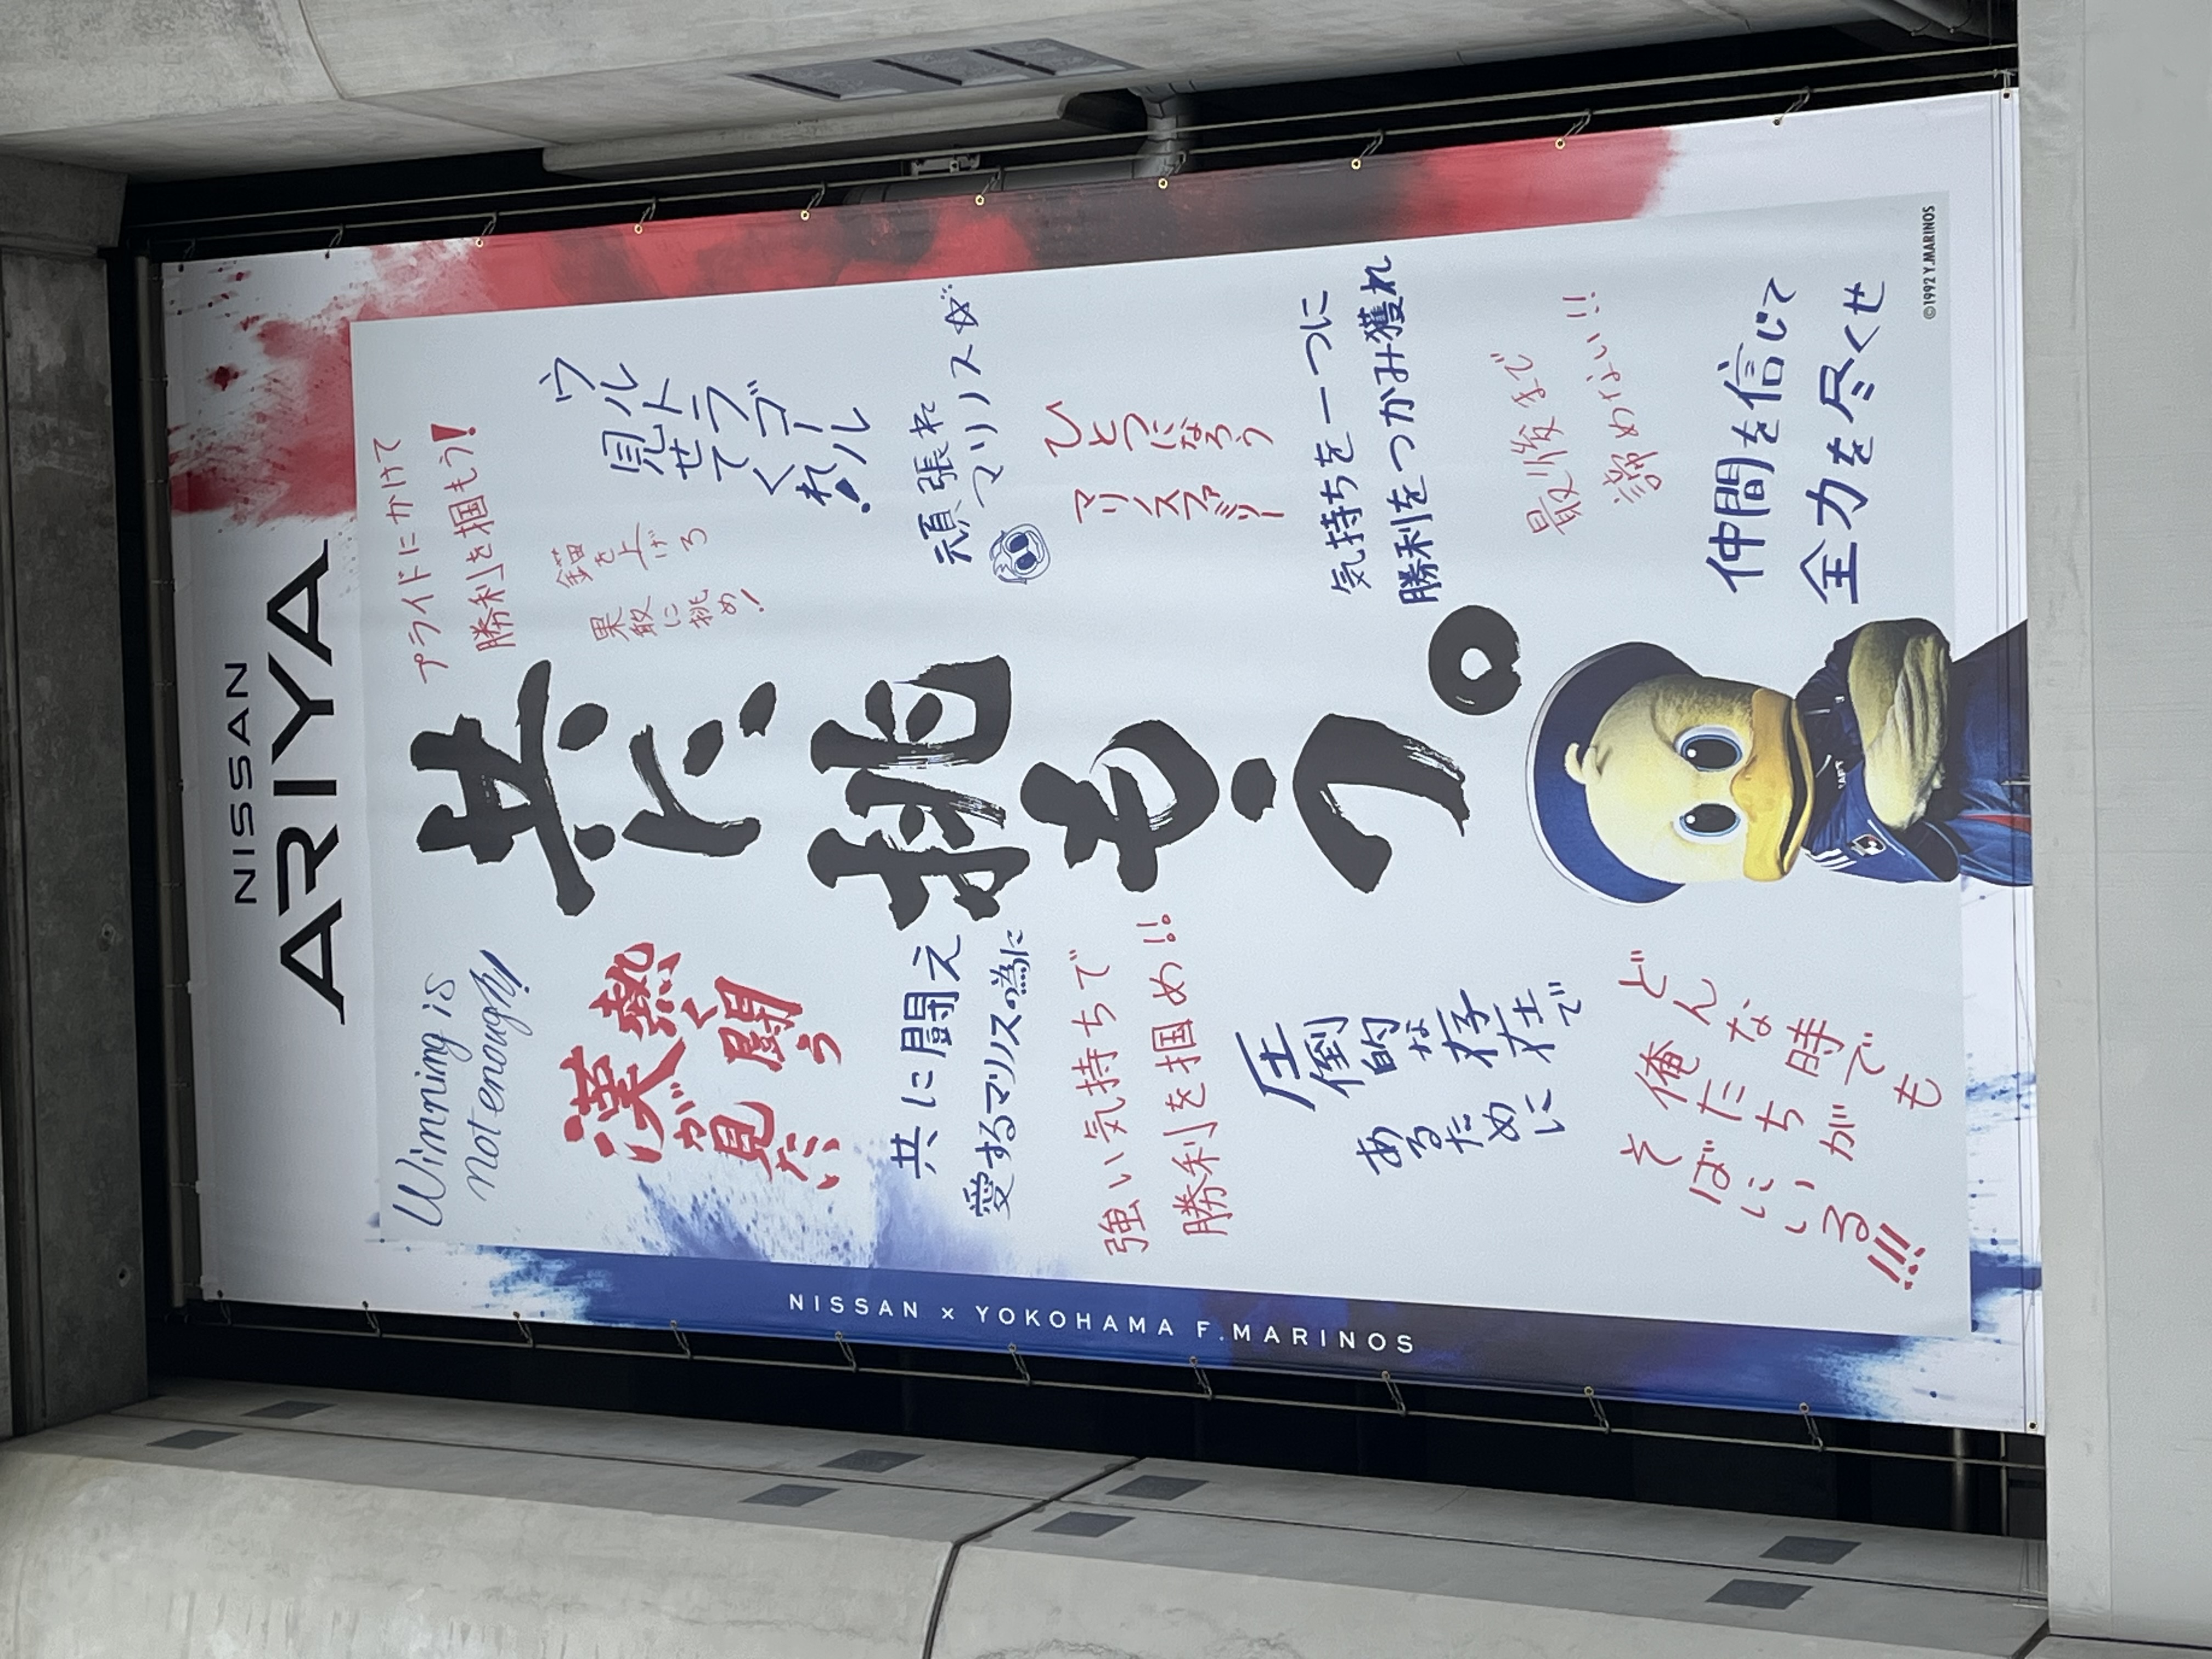 NISSAN
ARIYA
共に、挑もう。
プライドにかけて
勝利を掴もう!
錨を上げろ
果敢に挑め!
ウルトラゴール
見せてくれ!
頑張れ
マリノス☆
ひとつになろう
マリノスファミリー
気持ちを一つに
勝利をつかみ獲れ
最後まで
諦めない!!
仲間を信じて
全力を尽くせ
Winning is
not enough!
熱く闘う
漢が見たい
共に闘え
愛するマリノスの為に
強い気持ちで
勝利を掴め!!
圧倒的な存在で
あるために
どんな時でも
俺たちが
そばにいる!!!
NISSAN × YOKOHAMA F.MARINOS
©1992 Y.MARINOS